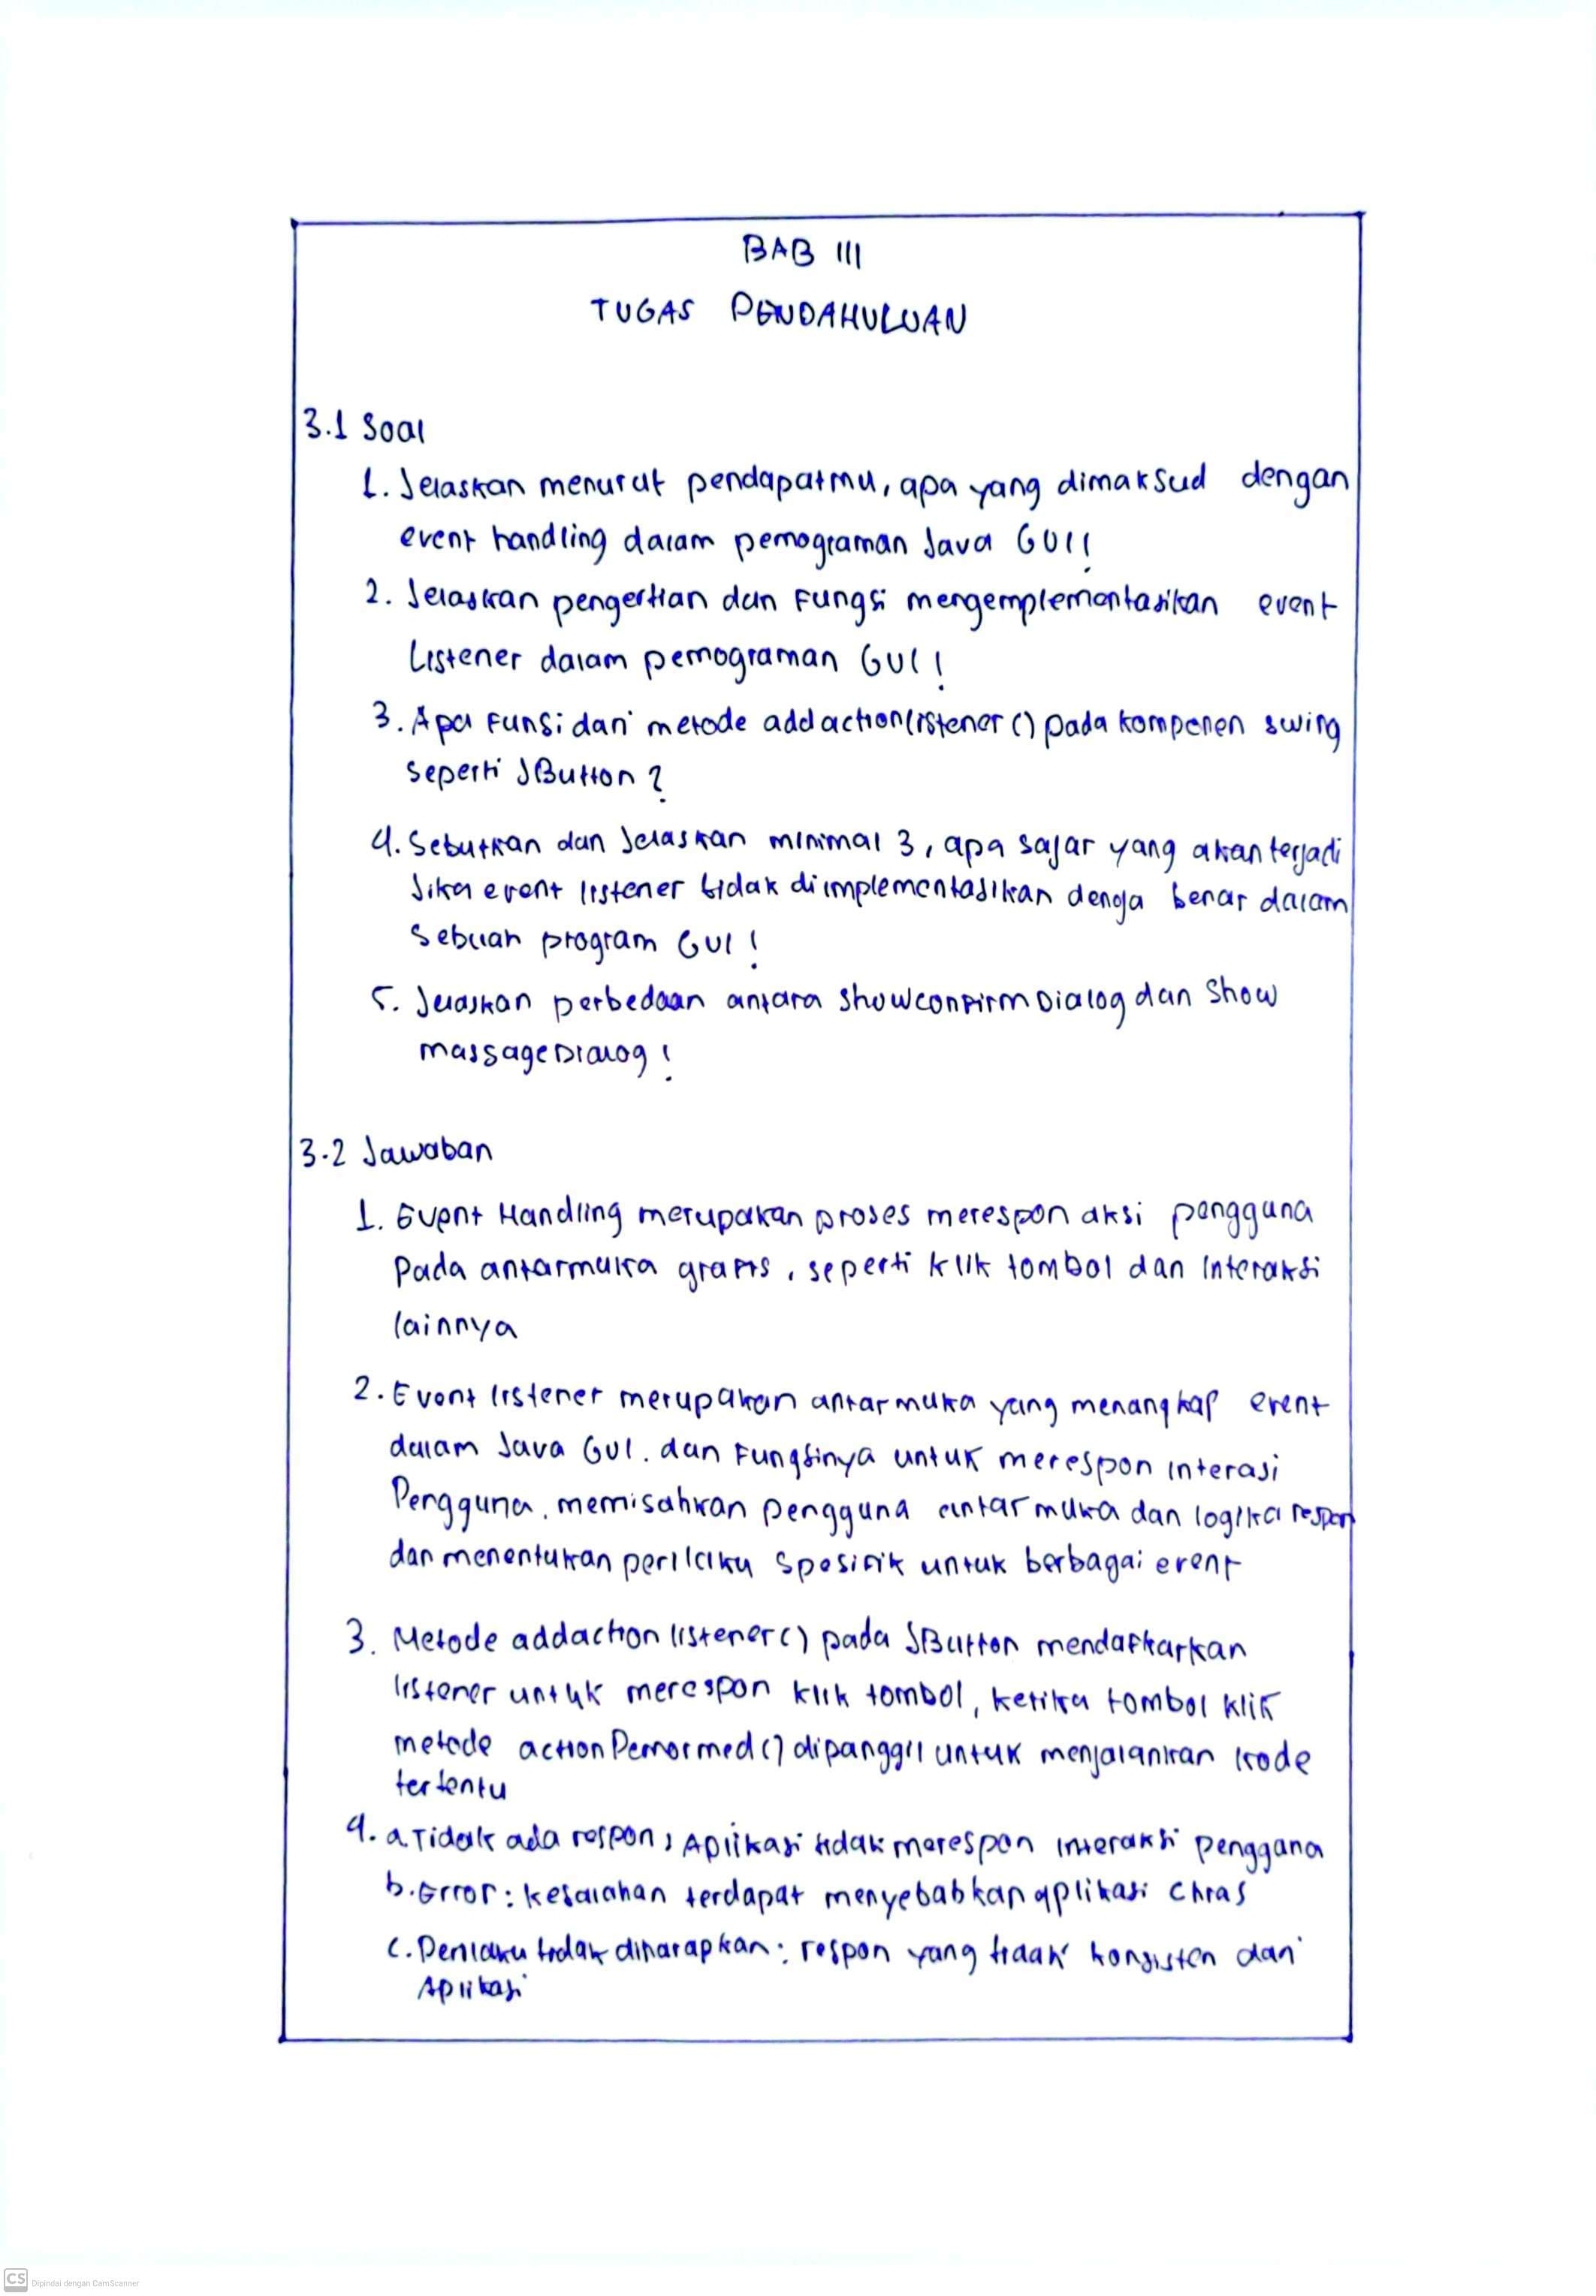 BAB III
TUGAS PENDAHULUAN
3.1 Soal
1. Jelaskan menurut pendapatmu, apa yang dimaksud dengan
event handling dalam pemograman Java GUI!
2. Jelaskan pengertian dan Fungsi mengemplementasikan event
Listener dalam pemograman GUI!
3. Apa Funsi dari metode addactionlistener() pada komponen swing
seperti JButton?
4. Sebutkan dan Jelaskan minimal 3, apa sajar yang akan terjadi
Jika event listener tidak diimplementasikan denga benar dalam
Sebuah program GUI!
5. Jelaskan perbedaan antara showconfirmDialog dan Show
massageDialog!
3.2 Jawaban
1. Event Handling merupakan proses merespon aksi pengguna
Pada antarmuka grafis, seperti klik tombol dan Interaksi
lainnya
2. Event listener merupakan antarmuka yang menangkap event
dalam Java GUI. dan Fungsinya untuk merespon interasi
Pengguna, memisahkan pengguna antarmuka dan logika respon
dan menentukan perilaku Spesifik untuk berbagai event
3. Metode addaction listener() pada JButton mendaftarkan
listener untuk merespon klik tombol, ketika tombol klik
metode actionPerformed() dipanggil untuk menjalankan kode
tertentu
4. a. Tidak ada respon, Aplikasi tidak merespon Interaksi pengguna
b. Error: kesalahan terdapat menyebabkan aplikasi chras
c. Perilaku tidak diharapkan: respon yang tidak konsisten dari
Aplikasi
CS Dipindai dengan CamScanner